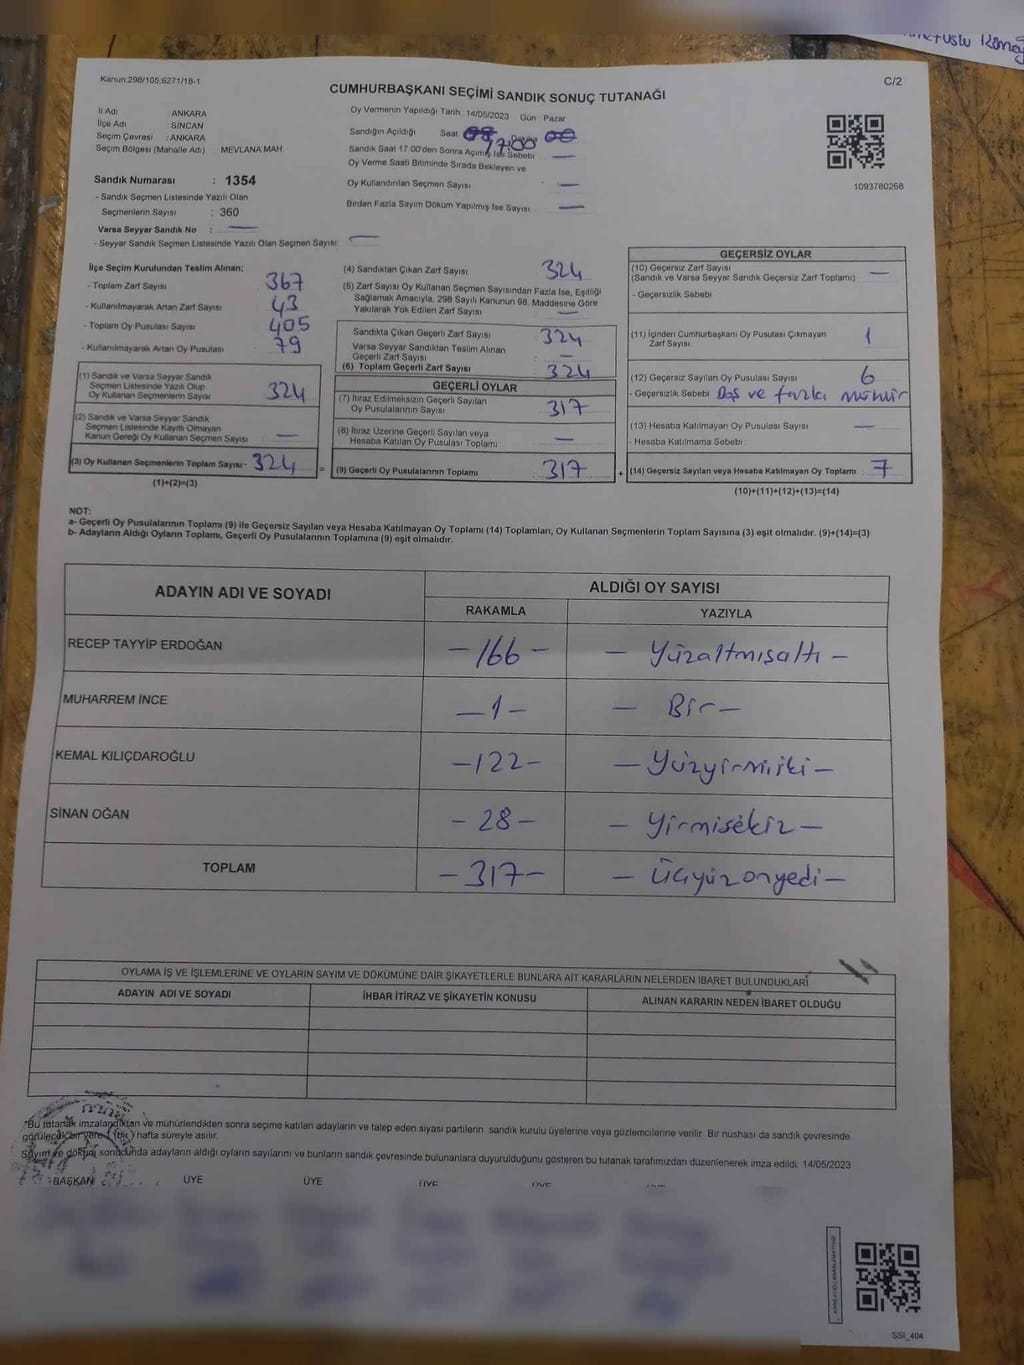 Kanun,298/105,6271/18-1
CUMHURBAŞKANI SEÇİMİ SANDIK SONUÇ TUTANAĞI
C/2
İl Adı ANKARA
İlçe Adı SİNCAN
Seçim Çevresi : ANKARA
Seçim Bölgesi (Mahalle Adı) MEVLANA MAH
Sandık Numarası : 1354
- Sandık Seçmen Listesinde Yazılı Olan
Seçmenlerin Sayısı : 360
Varsa Seyyar Sandık No : —
- Seyyar Sandık Seçmen Listesinde Yazılı Olan Seçmen Sayısı —
Oy Vermenin Yapıldığı Tarih 14/05/2023 Gün Pazar
Sandığın Açıldığı Saat 17:00
Sandık Saat 17.00'den Sonra Açılmış İse Sebebi —
Oy Verme Saati Bitiminde Sırada Bekleyen ve
Oy Kullandırılan Seçmen Sayısı —
Birden Fazla Sayım Döküm Yapılmış İse Sayısı —
1093780268
İlçe Seçim Kurulundan Teslim Alınan;
- Toplam Zarf Sayısı 367
- Kullanılmayarak Artan Zarf Sayısı 43
- Toplam Oy Pusulası Sayısı 405
- Kullanılmayarak Artan Oy Pusulası 79
(1) Sandık ve Varsa Seyyar Sandık
Seçmen Listesinde Yazılı Olup
Oy Kullanan Seçmenlerin Sayısı 324
(2) Sandık ve Varsa Seyyar Sandık
Seçmen Listesinde Kayıtlı Olmayan
Kanun Gereği Oy Kullanan Seçmen Sayısı —
(3) Oy Kullanan Seçmenlerin Toplam Sayısı- 324 =
(1)+(2)=(3)
(4) Sandıktan Çıkan Zarf Sayısı 324
(5) Zarf Sayısı Oy Kullanan Seçmen Sayısından Fazla İse, Eşitliği
Sağlamak Amacıyla, 298 Sayılı Kanunun 98. Maddesine Göre
Yakılarak Yok Edilen Zarf Sayısı —
Sandıkta Çıkan Geçerli Zarf Sayısı 324
Varsa Seyyar Sandıktan Teslim Alınan
Geçerli Zarf Sayısı —
(6) Toplam Geçerli Zarf Sayısı 324
GEÇERLİ OYLAR
(7) İtiraz Edilmeksizin Geçerli Sayılan
Oy Pusulalarının Sayısı 317
(8) İtiraz Üzerine Geçerli Sayılan veya
Hesaba Katılan Oy Pusulası Toplamı —
(9) Geçerli Oy Pusulalarının Toplamı 317 +
GEÇERSİZ OYLAR
(10) Geçersiz Zarf Sayısı —
(Sandık ve Varsa Seyyar Sandık Geçersiz Zarf Toplamı)
- Geçersizlik Sebebi
(11) İçinden Cumhurbaşkanı Oy Pusulası Çıkmayan
Zarf Sayısı 1
(12) Geçersiz Sayılan Oy Pusulası Sayısı 6
- Geçersizlik Sebebi Boş ve fazla mühür
(13) Hesaba Katılmayan Oy Pusulası Sayısı —
- Hesaba Katılmama Sebebi
(14) Geçersiz Sayılan veya Hesaba Katılmayan Oy Toplamı 7
(10)+(11)+(12)+(13)=(14)
NOT:
a- Geçerli Oy Pusulalarının Toplamı (9) ile Geçersiz Sayılan veya Hesaba Katılmayan Oy Toplamı (14) Toplamları, Oy Kullanan Seçmenlerin Toplam Sayısına (3) eşit olmalıdır. (9)+(14)=(3)
b- Adayların Aldığı Oyların Toplamı, Geçerli Oy Pusulalarının Toplamına (9) eşit olmalıdır.
ADAYIN ADI VE SOYADI ALDIĞI OY SAYISI
RAKAMLA YAZIYLA
RECEP TAYYİP ERDOĞAN -166- - Yüzaltmışaltı -
MUHARREM İNCE -1- - Bir -
KEMAL KILIÇDAROĞLU -122- - Yüzyirmiiki -
SİNAN OĞAN -28- - Yirmisekiz -
TOPLAM -317- - Üçyüzonyedi -
OYLAMA İŞ VE İŞLEMLERİNE VE OYLARIN SAYIM VE DÖKÜMÜNE DAİR ŞİKAYETLERLE BUNLARA AİT KARARLARIN NELERDEN İBARET BULUNDUKLARI
ADAYIN ADI VE SOYADI İHBAR İTİRAZ VE ŞİKAYETİN KONUSU ALINAN KARARIN NEDEN İBARET OLDUĞU
"Bu tutanak imzalandıktan ve mühürlendikten sonra seçime katılan adayların ve talep eden siyasi partilerin, sandık kurulu üyelerine veya gözlemcilerine verilir. Bir nüshası da sandık çevresinde
görülecek bir yere 1 (bir) hafta süreyle asılır.
Sayım ve döküm sonucunda adayların aldığı oyların sayılarını ve bunların sandık çevresinde bulunanlara duyurulduğunu gösteren bu tutanak tarafımızdan düzenlenerek imza edildi. 14/05/2023
BAŞKAN ÜYE ÜYE ÜYE ÜYE
SSI_404